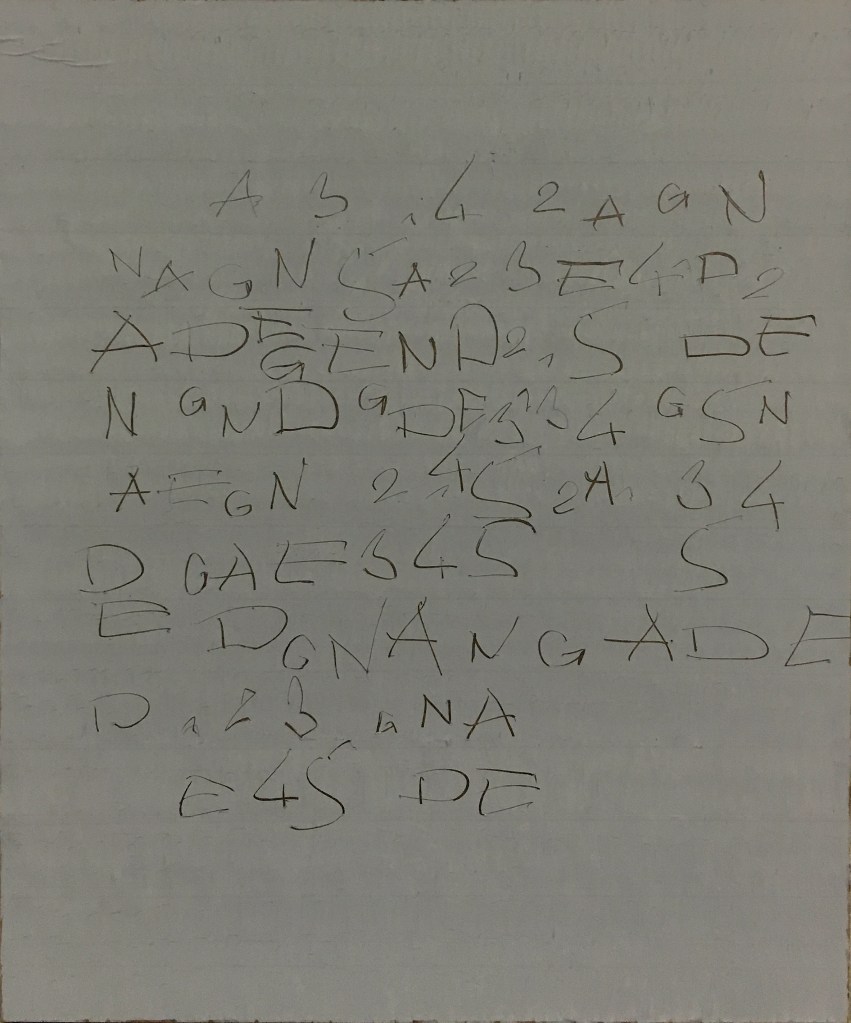 A 3 1 4 2 A G N
N A G N 5 A 2 3 E 4 D 2
A D E G E N D 2 1 5 D E
N G N D G D E 3 1 3 4 G 5 N
A E G N 2 1 4 5 2 A 1 3 4
D G A E 3 4 5 5
E D G N A N G A D E
D 1 2 3 G N A
E 4 5 D E